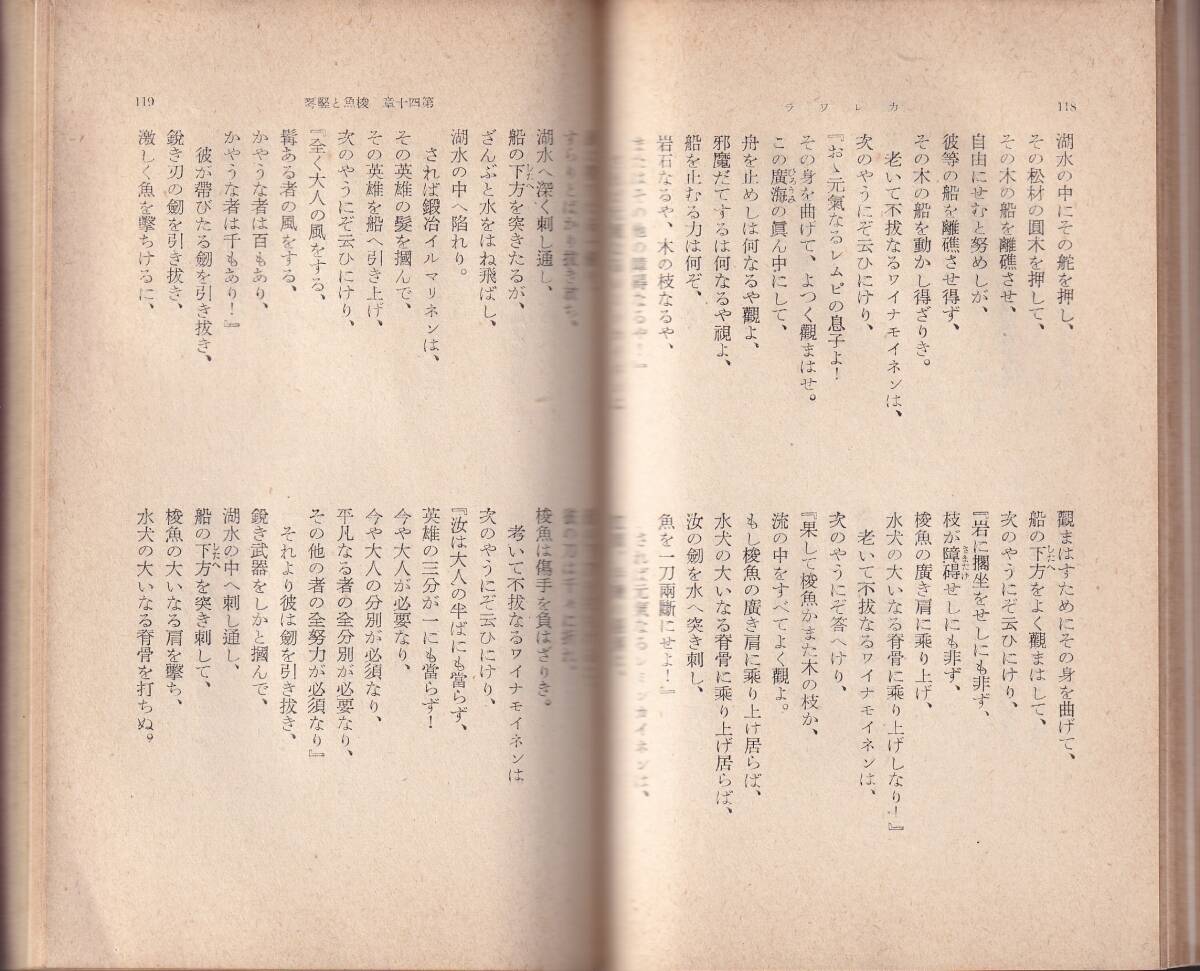 118
カレワラ
湖水の中にその舵を押し、
その松材の圓木を押して、
その木の船を離礁させ、
自由にせむと努めしが、
彼等の船を離礁させ得ず、
その木の船を動かし得ざりき。
老いて不拔なるワイナモイネンは、
次のやうにぞ云ひにけり、
『おゝ元氣なるレムピの息子よ！
その身を曲げて、よつく觀まはせ。
この廣海の眞ん中にして、
舟を止めしは何なるや觀よ、
邪魔だてするは何なるや視よ、
船を止むる力は何ぞ、
岩石なるや、木の枝なるや、
またはその他の障碍なるや！』
觀まはすためにその身を曲げて、
船の下方をよく觀まはして、
次のやうにぞ云ひにけり、
『岩に擱坐をせしにも非ず、
枝が障碍せしにも非ず、
梭魚の廣き肩に乘り上げ、
水犬の大いなる脊骨に乘り上げしなり！』
老いて不拔なるワイナモイネンは、
次のやうにぞ答へけり、
『果して梭魚かまた木の枝か、
流の中をすべてよく觀よ。
もし梭魚の廣き肩に乘り上げ居らば、
水犬の大いなる脊骨に乘り上げ居らば、
汝の劍を水へ突き刺し、
魚を一刀兩斷にせよ！』
されば元氣なるレミンカイネンは、
119
第四十章 梭魚と竪琴
すらりとばかり拔き放ち、
湖水へ深く刺し通し、
船の下方を突きたるが、
ざんぶと水をはね飛ばし、
湖水の中へ陷れり。
されば鍛冶イルマリネンは、
その英雄の髮を摑んで、
その英雄を船へ引き上げ、
次のやうにぞ云ひにけり、
『全く大人の風をする、
髯ある者の風をする、
かやうな者は百もあり、
かやうな者は千もあり！』
彼が帶びたる劍を引き拔き、
銳き刃の劍を引き拔き、
激しく魚を擊ちけるに、
彼の刀は千々に折れ、
梭魚は傷手を負はざりき。
老いて不拔なるワイナモイネンは
次のやうにぞ云ひにけり、
『汝は大人の半ばにも當らず、
英雄の三分が一にも當らず！
今や大人が必要なり、
今や大人の分別が必須なり、
平凡なる者の全分別が必要なり、
その他の者の全努力が必須なり』
それより彼は劍を引き拔き、
銳き武器をしかと摑んで、
湖水の中へ刺し通し、
船の下方を突き刺して、
梭魚の大いなる肩を擊ち、
水犬の大いなる脊骨を打ちぬ。